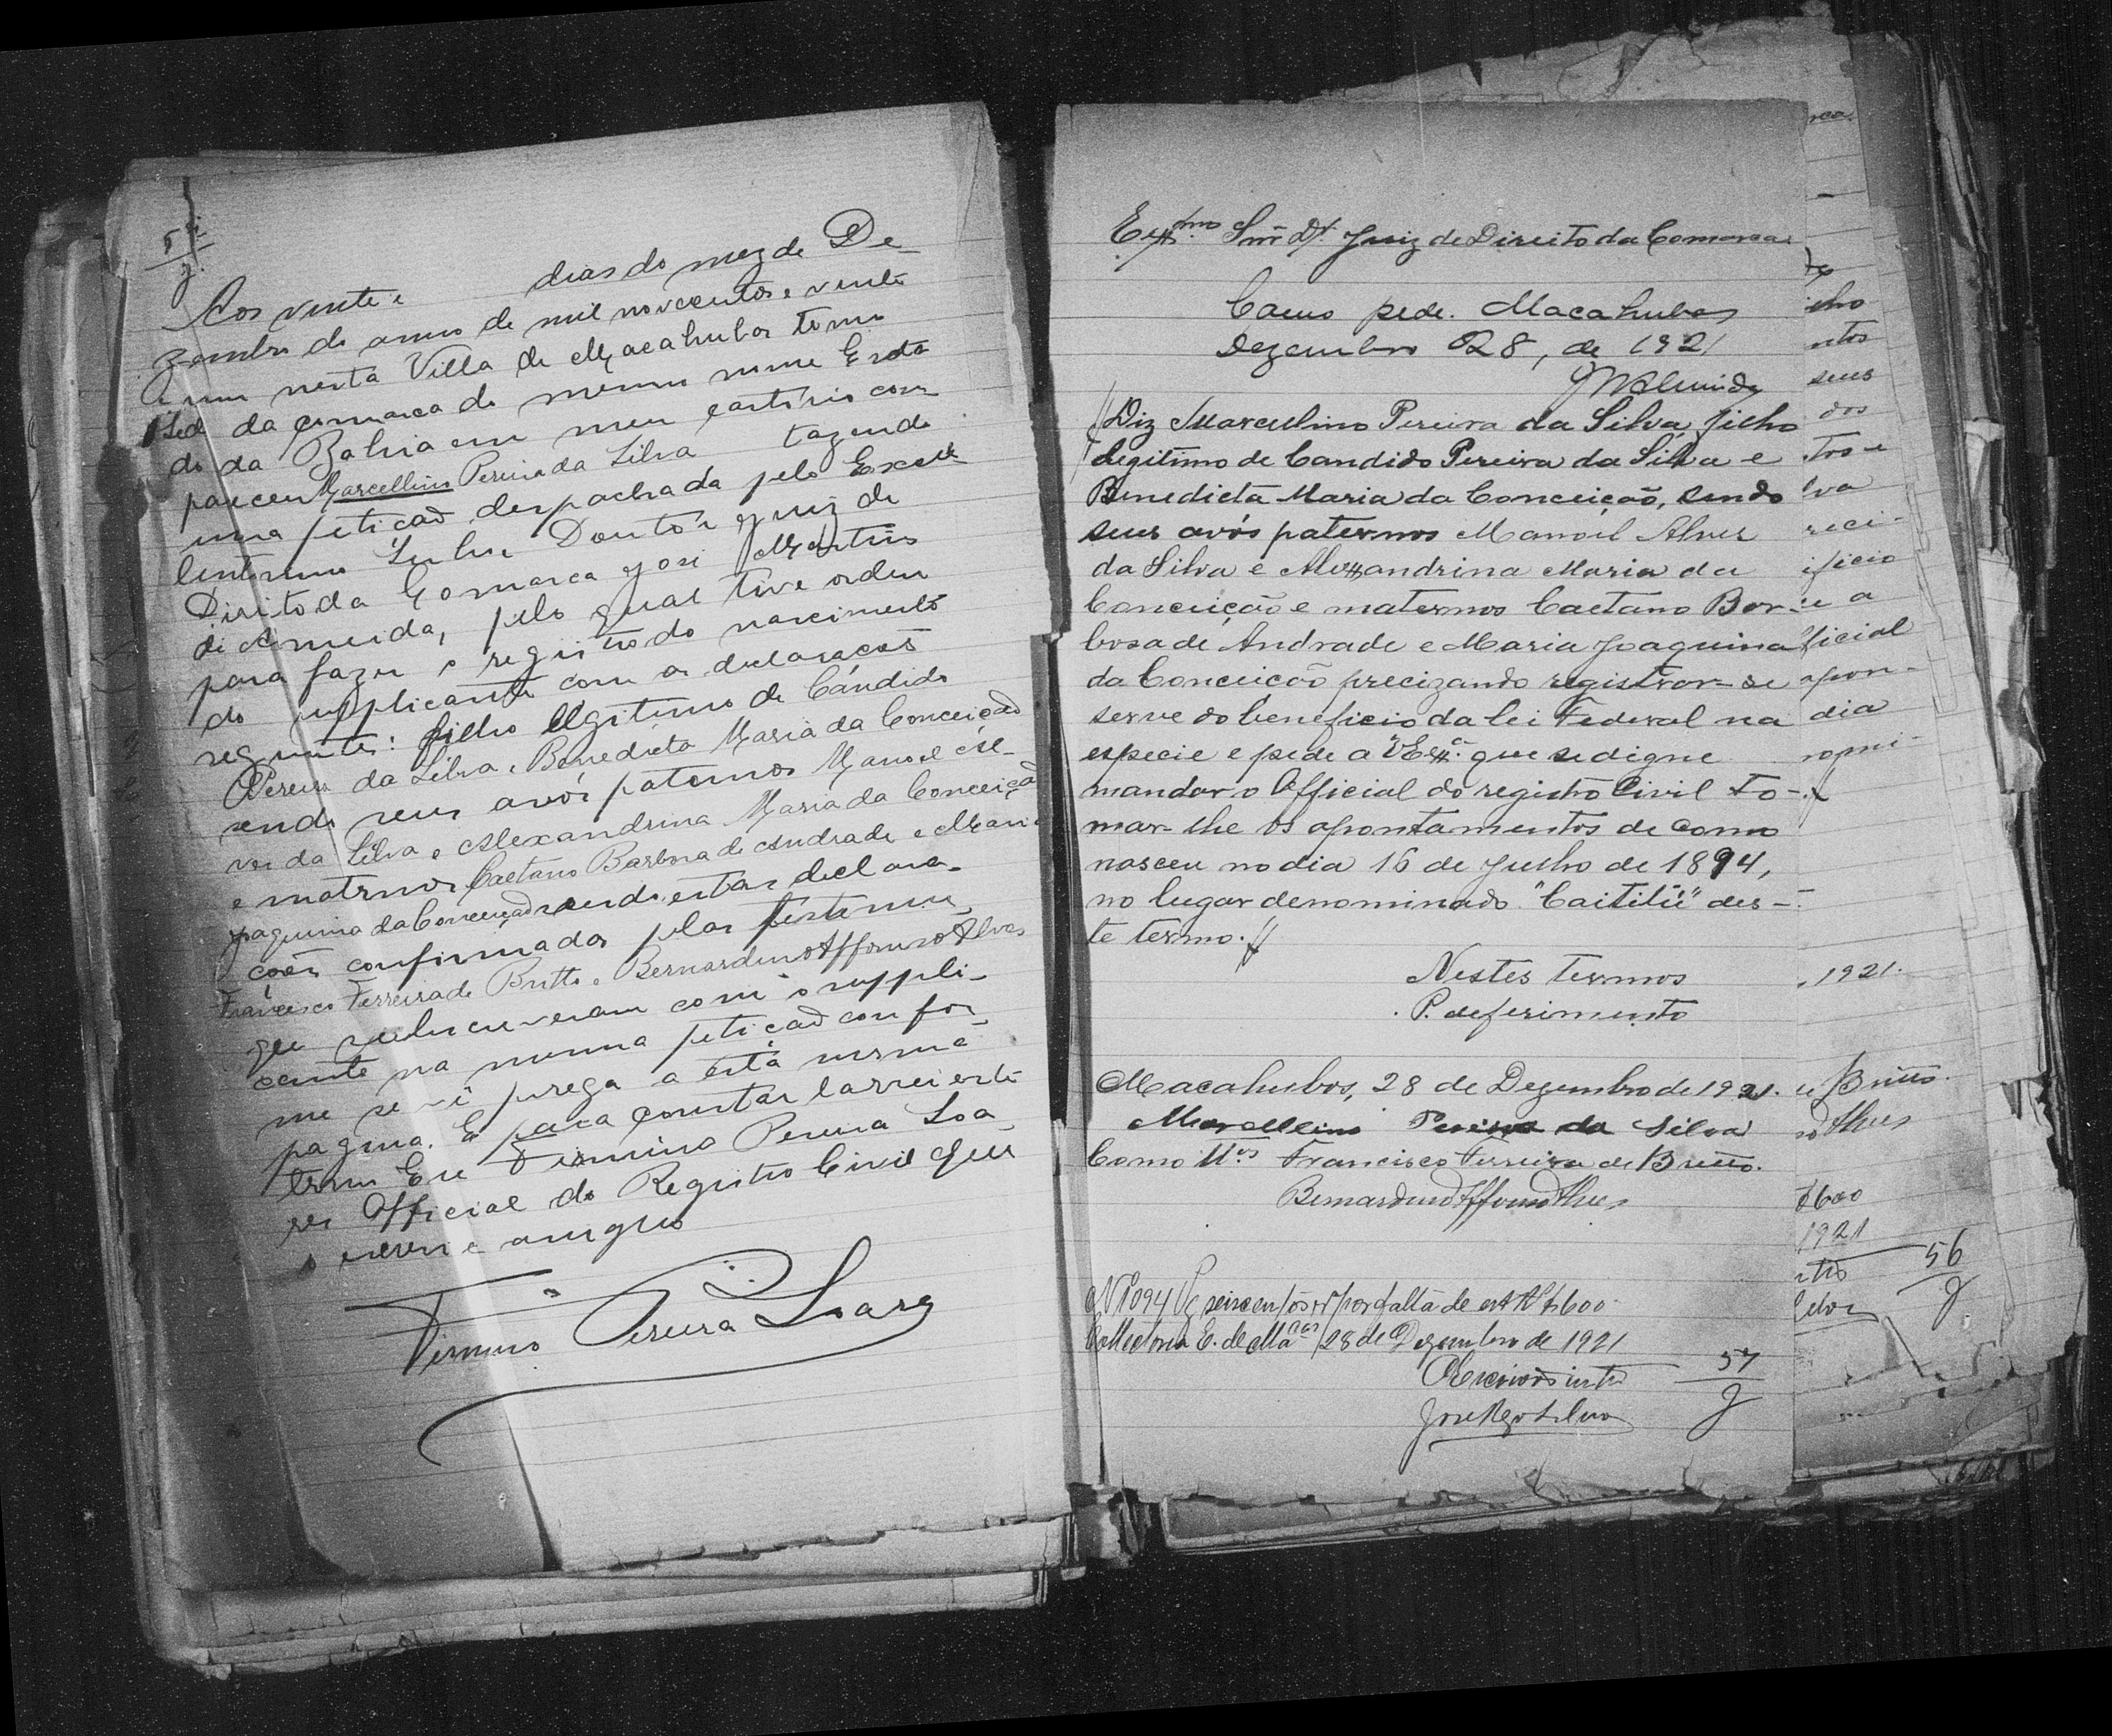 Aos vinte e dias do mez de De-
zembro do anno de mil novecentos e vinte
e um nesta Villa de Macahubas termo
Séde da comarca do mesmo nome Esta-
do da Bahia em meu cartorio com-
pareceu Marcellino Pereira da Silva tazendo
uma petição despachada pelo Excel-
lentissimo Senhor Doutor Juiz de
Direito da Comarca José Martins
de Almeida, pelo qual tive ordem
para fazer o registro do nascimento
do supplicante com as declarações
seguintes: filho legitimo de Candido
Pereira da Silva e Benedicta Maria da Conceição
sendo seus avós paternos Manoel Al-
ves da Silva e Alexandrina Maria da Conceição
e maternos Caetano Barbosa de Andrade e Maria
Joaquina da Conceição sendo estas declara-
ções confirmadas pelas testemu-
Francisco Ferreira de Britto e Bernardino Affonso Alves
que subscreveram com o suppli-
cante na mesma petição confor-
me se vê prega a esta mesma
pagina. E para constar lavrei este
termo Eu Firmino Pereira Soa-
res Official do Registro Civil que
o escrevi e assigno
Firmino Pereira Soares
Exmo Snr Dr. Juiz de Direito da Comarca
Como pede. Macahubas
Dezembro 28, de 1921
JMAlmeida
Diz Marcellino Pereira da Silva, filho
legitimo de Candido Pereira da Silva e
Benedicta Maria da Conceição, sendo
seus avós paternos Manoel Alves
da Silva e Alexandrina Maria da
Conceição e maternos Caetano Bar-
bosa de Andrade e Maria Joaquina
da Conceição precizando registrar-se
serve do beneficio da lei Federal na
especie e pede a VExa. que se digne
mandar o Official do registro Civil to-
mar-lhe os apontamentos de como
nasceu no dia 16 de Julho de 1894,
no lugar denominado "Caititú" des-
te termo.
Nestes termos
P. deferimento
Macahubas, 28 de Dezembro de 1921.
Marcellino Pereira da Silva
Como tt.as Francisco Ferreira de Britto.
Bernardino Affonso Alves
N 1094 Pg seiscentos rs por falta de est R$ $600
Collectoria E. de Macas 28 de Dezembro de 1921
O Escrivão intro
José Rgo Silva
57
J
icho
ntos
seus
dos
tros e
lva
reci-
ificio
e a
ficial
apon-
dia
nomi-
, 1921.
e Britto.
so Alves
$600
1921
ntro
Silva
56
J